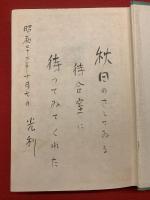 秋日のさしてゐる
待合室に
待つてゐてくれた
昭和十六年十月七日 光利